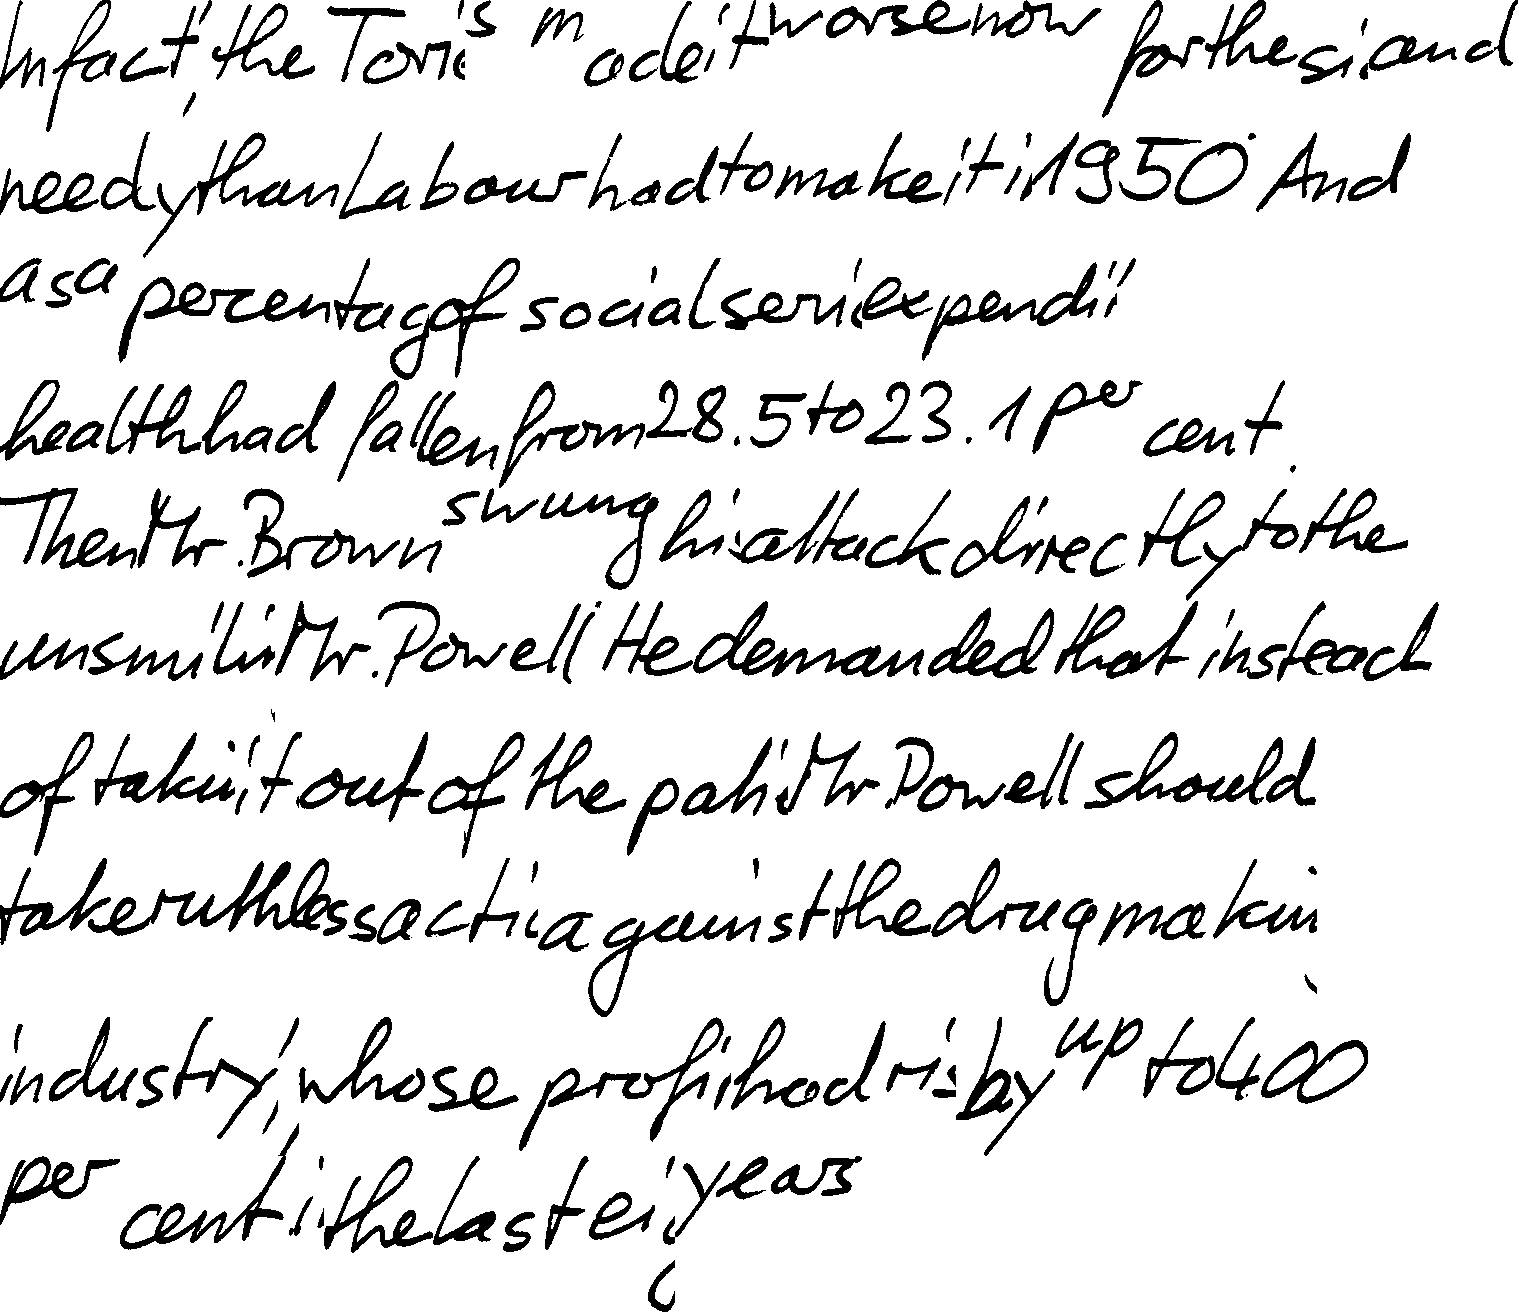 In fact, the Tories made it worse now for the sick and
needy than Labour had to make it in 1950. And
as a percentage of social services expenditure
health had fallen from 28.5 to 23.1 per cent.
Then Mr. Brown swung his attack directly to the
unsmiling Mr. Powell. He demanded that instead
of taking it out of the patients Mr. Powell should
take ruthless action against the drug making
industry, whose profits had risen by up to 400
per cent in the last eight years